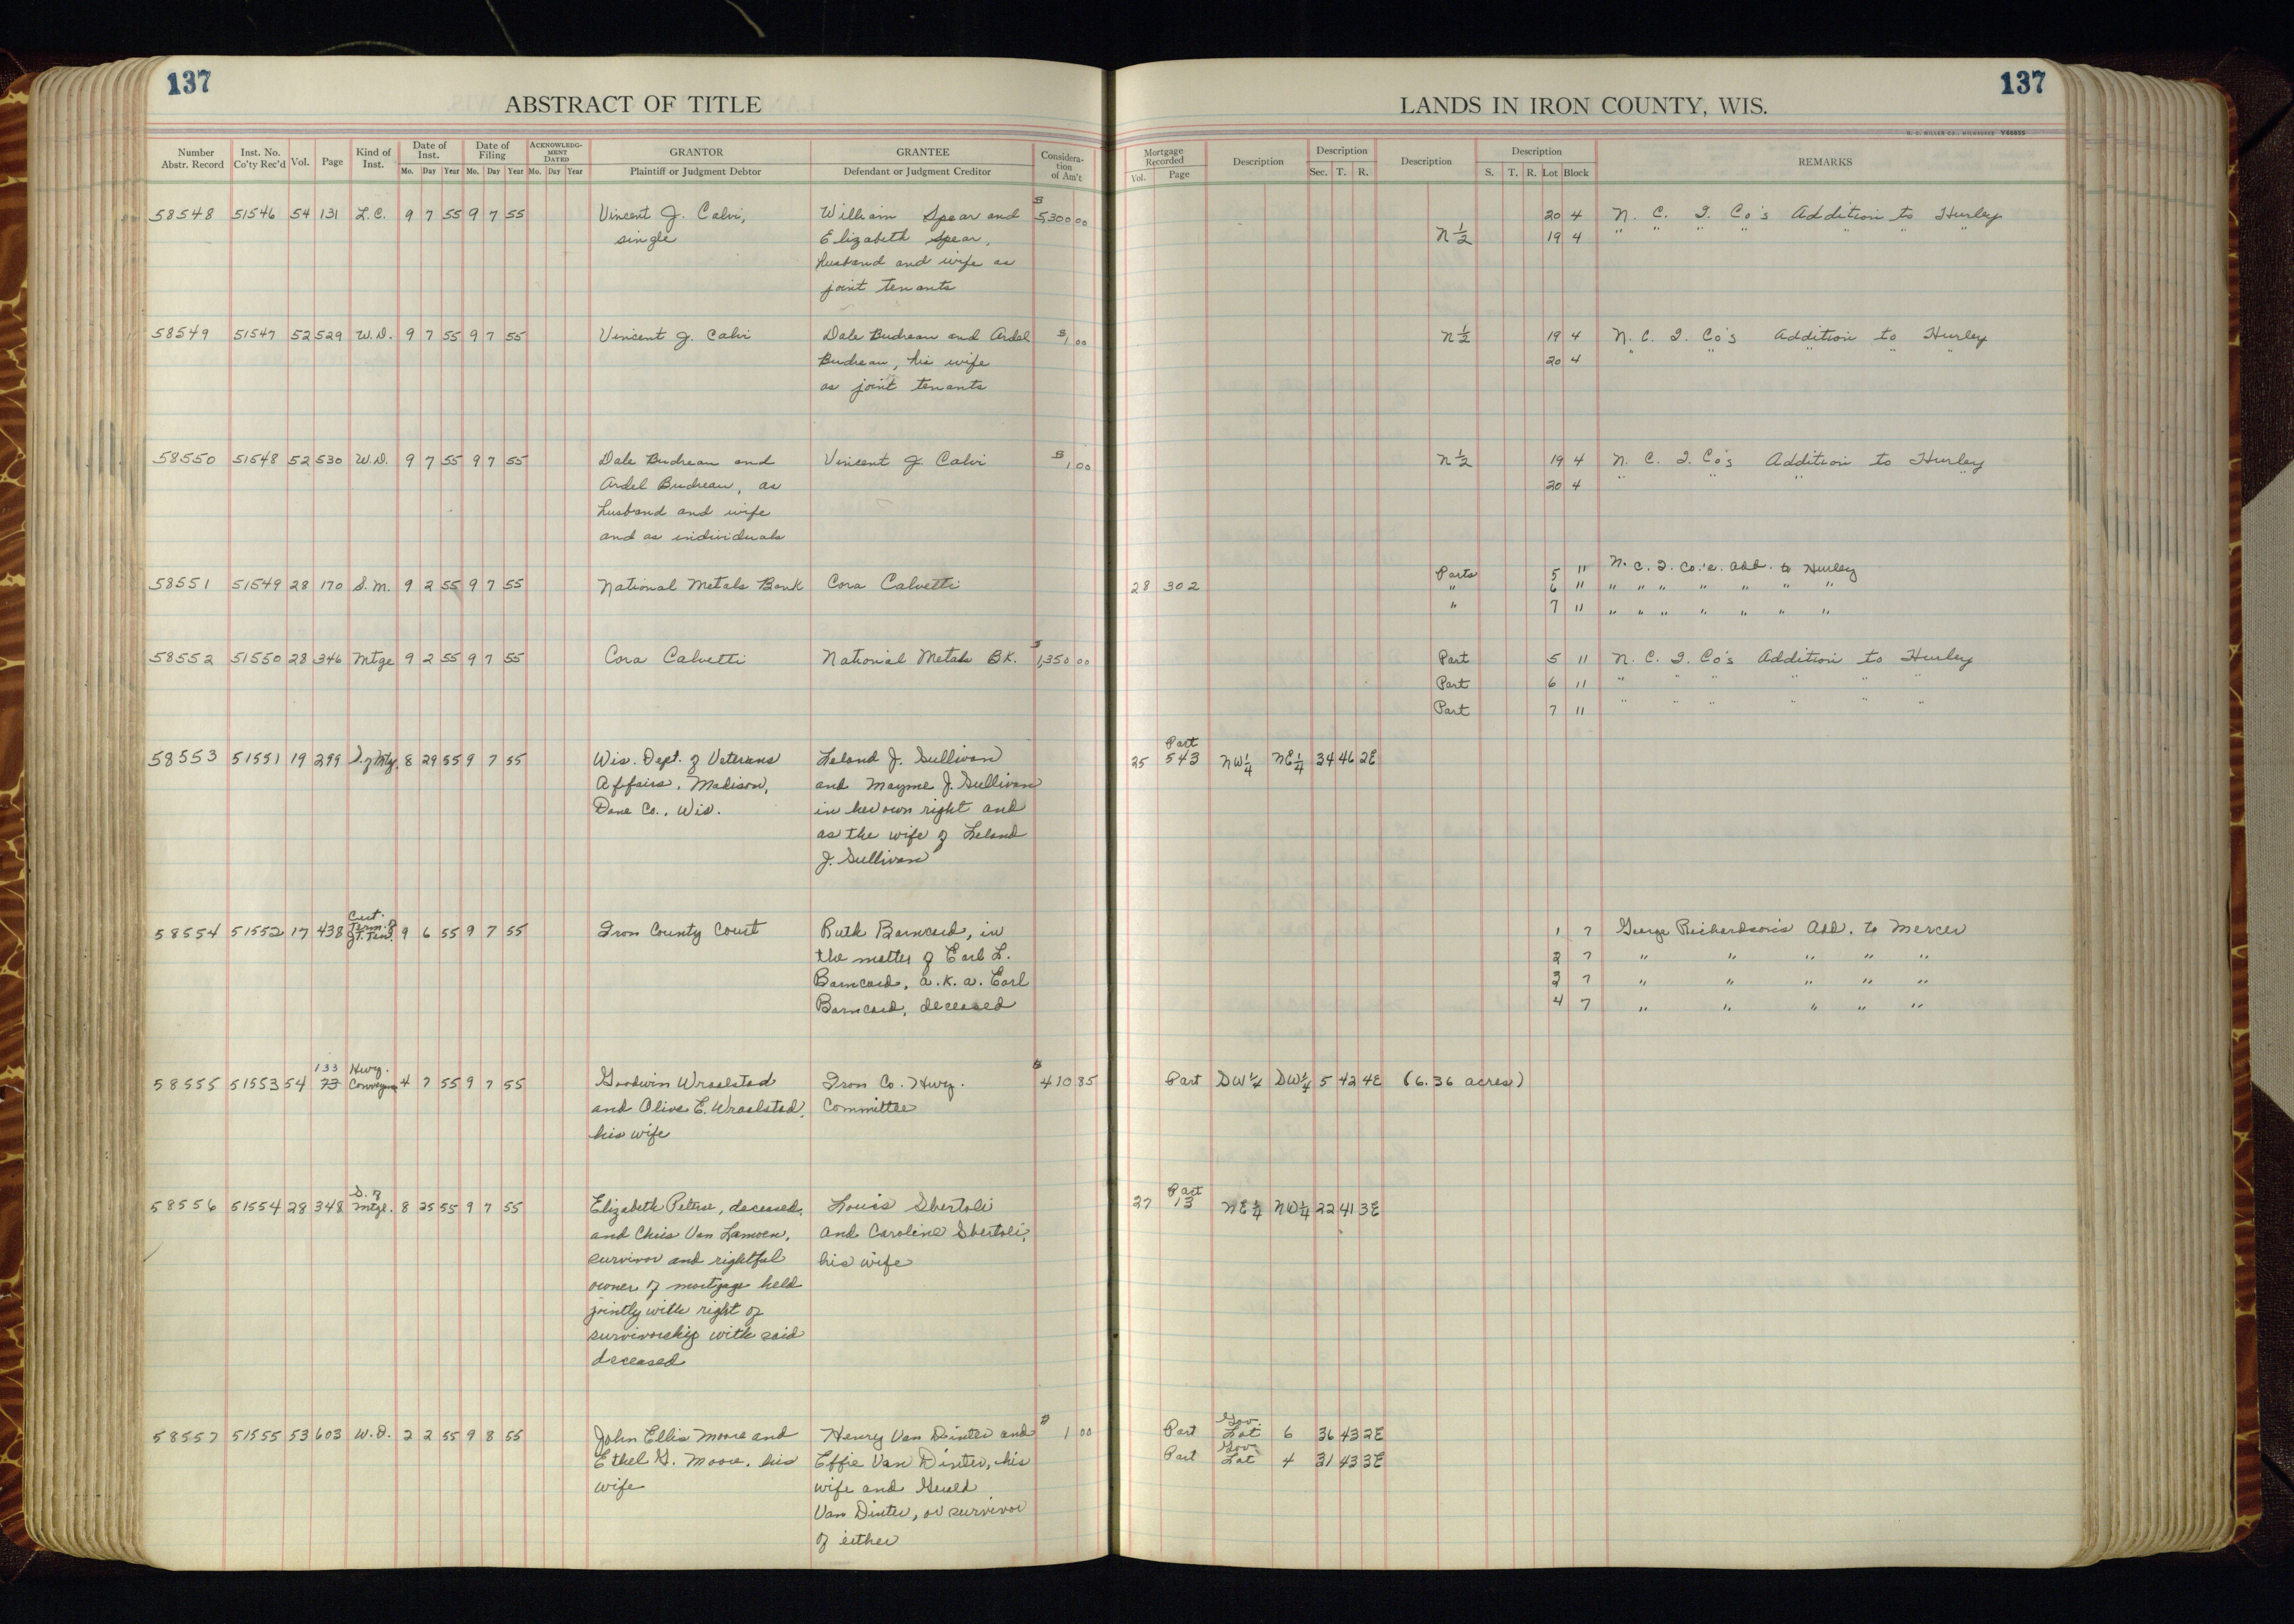 137
ABSTRACT OF TITLE
Number Abstr. Record Inst. No. Co'ty Rec'd Vol. Page Kind of Inst. Date of Inst. Mo. Day Year Date of Filing Mo. Day Year ACKNOWLEDGMENT DATED Mo. Day Year GRANTOR Plaintiff or Judgment Debtor GRANTEE Defendant or Judgment Creditor Consideration of Am't
137
LANDS IN IRON COUNTY, WIS.
H. C. MILLER CO., MILWAUKEE Y60855
Mortgage Recorded Vol. Page Description Description Sec. T. R. Description Description S. T. R. Lot Block REMARKS
58548 51546 54 131 L.C. 9 7 55 9 7 55 Vincent J. Calvi, William Spear and $5,300 00 20 4 N. C. I. Co's Addition to Hurley
single Elizabeth Spear, N 1/2 19 4 " " " " " " "
husband and wife as
joint tenants
58549 51547 52 529 W.D. 9 7 55 9 7 55 Vincent J. Calvi Dale Budreau and Ardel $1 00 N 1/2 19 4 N. C. I. Co's Addition to Hurley
Budreau, his wife 20 4 " " " " "
as joint tenants
58550 51548 52 530 W.D. 9 7 55 9 7 55 Dale Budreau and Vincent J. Calvi $1 00 N 1/2 19 4 N. C. I. Co's Addition to Hurley
Ardel Budreau, as 20 4 " " " "
husband and wife
and as individuals
58551 51549 28 170 S.M. 9 2 55 9 7 55 National Metals Bank Cora Calvetti 28 302 Parts 5 11 N. C. I. Co.'s. Add. to Hurley
" 6 11 " " " " " " "
" 7 11 " " " " " " "
58552 51550 28 346 Mtge 9 2 55 9 7 55 Cora Calvetti National Metals BK. $1,350 00 Part 5 11 N. C. I. Co's Addition to Hurley
Part 6 11 " " " " " "
Part 7 11 " " " " " "
58553 51551 19 299 S. of Mtg. 8 29 55 9 7 55 Wis. Dept. of Veterans Leland J. Sullivan 25 Part 543 NW 1/4 NE 1/4 34 46 2E
Affairs, Madison, and Mayme J. Sullivan
Dane Co., Wis. in her own right and
as the wife of Leland
J. Sullivan
58554 51552 17 438 Cert. Term. of Jt. Ten. 9 6 55 9 7 55 Iron County Court Ruth Barncard, in 1 7 George Richardson's Add. to Mercer
the matter of Earl L. 2 7 " " " " "
Barncard, a.k.a. Earl 3 7 " " " " "
Barncard, deceased 4 7 " " " " "
58555 51553 54 133 73 Hwy. Conveyance 4 7 55 9 7 55 Goodwin Wraalstad Iron Co. Hwy. $410 85 Part SW 1/4 SW 1/4 5 42 4E (6.36 acres)
and Olive E. Wraalstad, Committee
his wife
58556 51554 28 348 S. of Mtge. 8 25 55 9 7 55 Elizabeth Petrie, deceased, Louis Sbertoli 27 Part 13 NE 1/4 NW 1/4 22 41 3E
and Chris Van Lamoen, and Caroline Sbertoli,
survivor and rightful his wife
owner of mortgage held
jointly with right of
survivorship with said
deceased
58557 51555 53 603 W.D. 2 2 55 9 8 55 John Ellis Moore and Henry Van Dinter and $1 00 Part Gov. Lot 6 36 43 2E
Ethel G. Moore, his Effie Van Dinter, his Part Gov. Lot 4 31 43 3E
wife wife and Gerald
Van Dinter, or survivor
of either